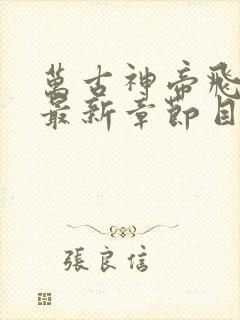 萬古神帝飛
最新章節目
張良信